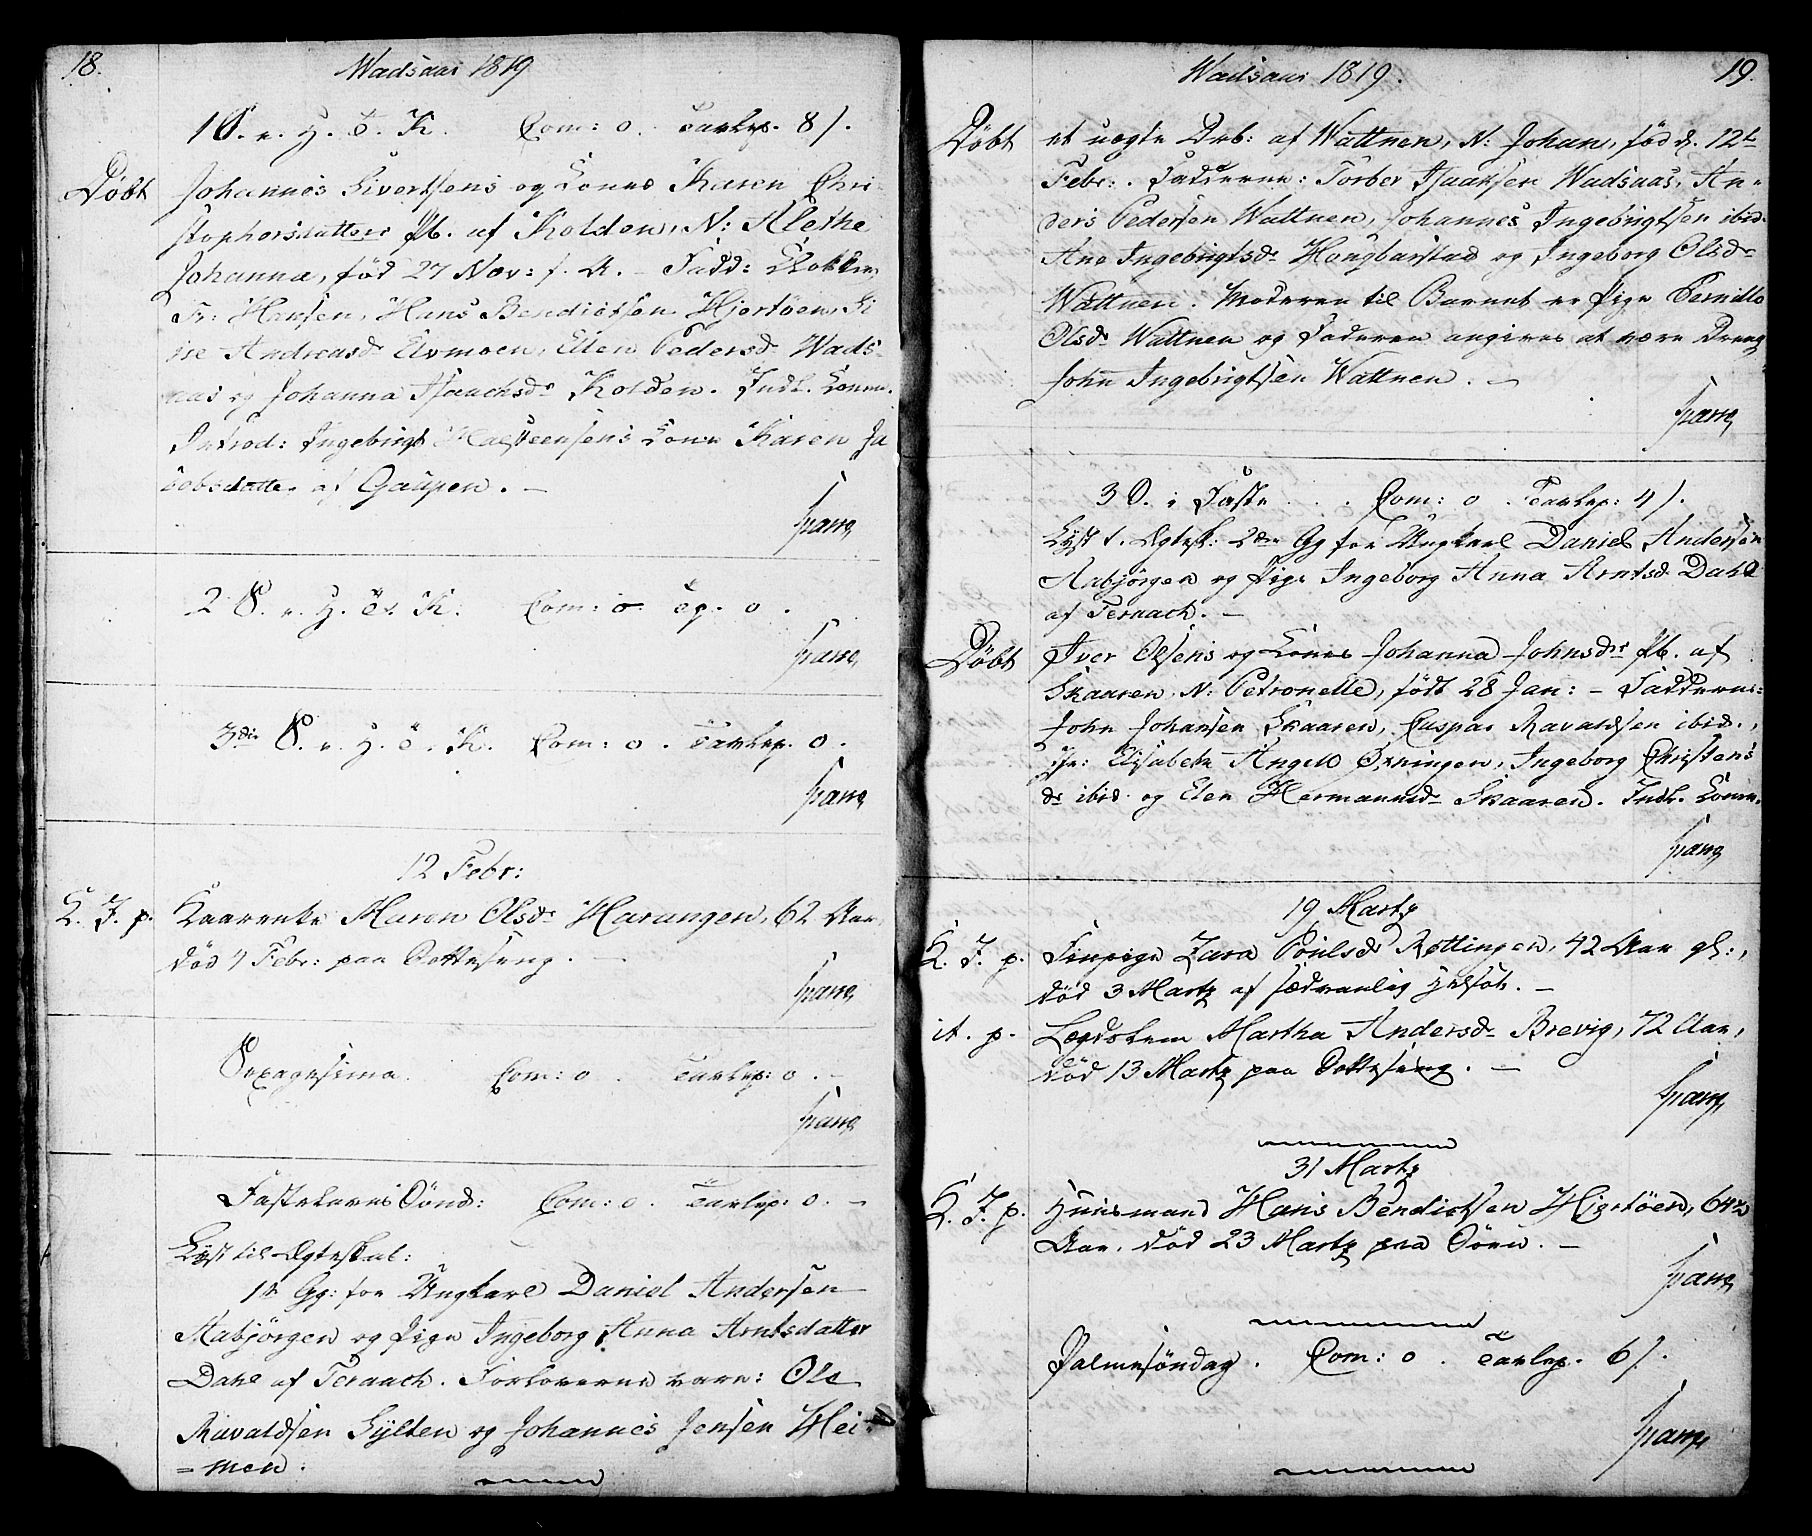 18.
Wadsaas 1819
1 S. e. H. 3. K. Com: o. Tavlep. 8 /.
Döbt Johannes Sivertsens og Kones Karen Chri
stophersdatters Pb. af Kolden, N: Alethe
Johanna, född 27 Nov: f. A. – Fadd: Klokker
Fr: Hansen, Hans Bendictsen Hjortöen, Si
ne Andreasd. Elvmoen, Ellen Pedersd. Wads
aas og Johanna Isaachsd. Kolden. Indl. Konen.
Introd: Ingebrigt Halsteensens Kone Karen Ja
cobsdatter af Gaupen. –
Spang
2 S. e. H. 3. K. Com: o. Tp. o.
Spang
3die S. e. H. 3. K. Com: o. Tavlep. o.
Spang
12 Febr:
K. J. p. Kaarenke Maren Olsd. Marungen, 62 Aar,
död 4 Febr: paa Sottesseng. –
Spang
Sexagesima. Com: o. Tavlep: o. –
Spang
Fastelavns Sönd: Com: o. Tavlep: o. –
Lyst til Ægteskab:
1ste Gg: for Ungkarl Daniel Andersen
Aabjörgen og Pige Ingeborg Anna Arntsdatter
Dahl af Teraach. Forloverne vare: Ole
Ravaldsen Sylten og Johannes Jensen Hei
= men.
Wadsaas 1819.
19.
Döbt et uægte Drb: af Wattnen, N: Johan, föd d. 12te
Febr: . Fadderne: Torber Isaaksen Wadsaas, An=
ders Pedersen Wattnen, Johannes Ingebrigtsen ibid.
Ane Ingebrigtsd. Hougbarstad og Ingeborg Olsd.
Wattnen. Moderen til Barnet er Pige Pernille
Olsd. Wattnen og Faderen angives at være Dreng
John Ingebrigtsen Wattnen. –
Spang
3 S. i Faste . . Com: o . Tavlep: 4 /.
Lyst t. Ægtesk: 2den Gg for Ungkarl Daniel Andersen
Aabjörgen og Pige Ingeborg Anna Arntsd. Dahl
af Teraach. –
Döbt Iver Olsens og Kones Johanna Johnsdr Pb. af
Skaaren, N: Petronelle, födt 28 Jan: – Fadderne:
John Johansen Skaaren, Caspar Ravaldsen ibid.,
Elisabeth Angell Öxningen, Ingeborg Christens
dr ibid. og Elen Hermannsd. Skaaren. Indl. Konen.
Spang
19 Martz
K. J. p. Finpige Zara Poulsd. Röttingen, 42 Aar gl:,
död 3 Martz af sædvanlig.
it. p. Lægdslem Martha Andersd. Brevig, 72 Aar,
död 13 Martz paa Sottesseng. –
Spang
31 Martz
K. J. p. Huusmand Hans Bendictsen Hjortöen, 64½
Aar, död 23 Martz paa Söen. –
Spang
Palmesöndag. Com: o . Tavlep. 6 /.
Spang